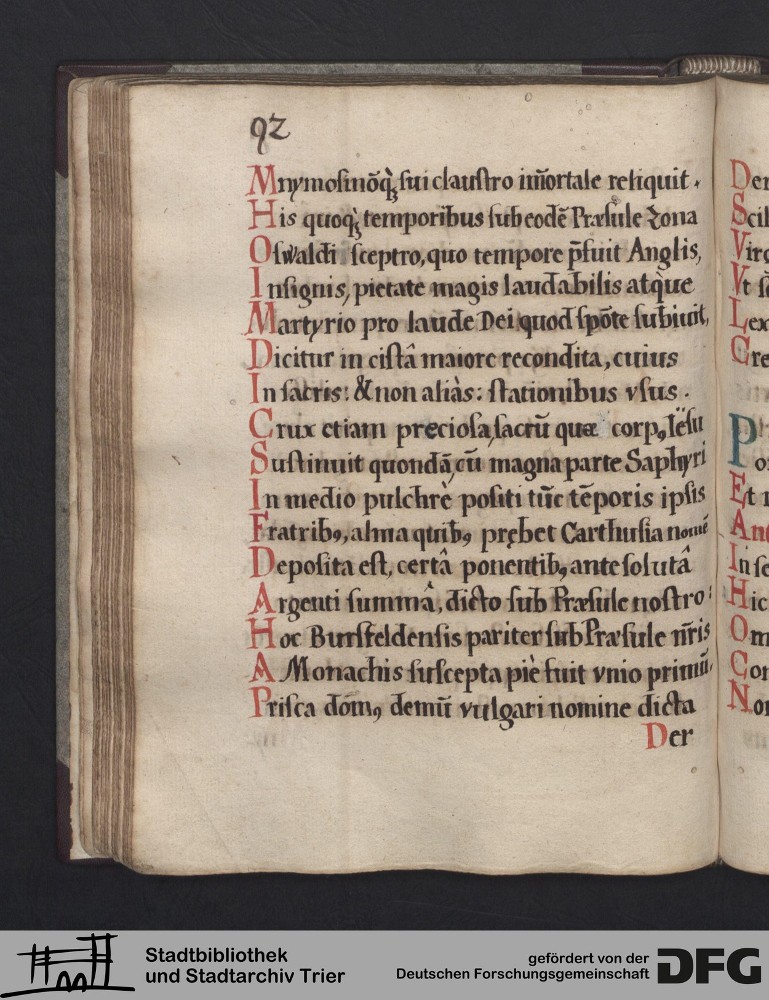 92
Mnymosinõq́ꝫ sui claustro im̃ortale reliquit.
His quoq́ꝫ temporibus sub eodẽ Præsule Zona
Oswaldi sceptro, quo tempore p̃fuit Anglis,
Insignis, pietate magis laudabilis atq̀ue
Martyrio pro laude Dei quod spõte subiuit,
Dicitur in cistâ maiore recondita, cuius
In sacris: & non aliàs: stationibus vsus.
Crux etiam preciosa, sacrũ quæ corpꝰ Iësu
Sustinuit quondã, cũ magna parte Saphyri
In medio pulchrè positi tũc tẽporis ipsis
Fratribꝰ, alma quibꝰ prębet Carthusia nomẽ
Deposita est, certâ ponentibꝰ ante solutâ
Argenti summâ, dicto sub Præsule nostro:
Hoc Bursfeldensis pariter sub Præsule nr̃is
A Monachis suscepta piè fuit vnio primũ,
Prisca domꝰ demũ vulgari nomine dicta
Der
Der
Scil
Virg
Vt
Lex
Cre
P
Et
Hic
Stadtbibliothek
und Stadtarchiv Trier
gefördert von der
Deutschen Forschungsgemeinschaft
DFG